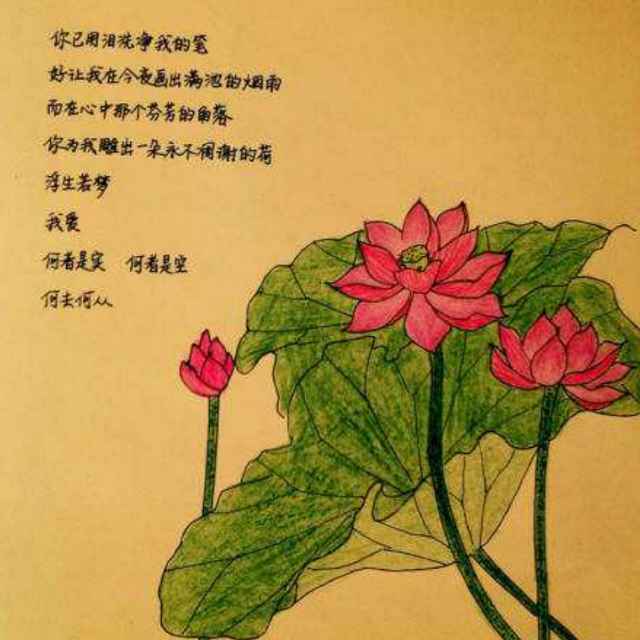 你已用泪洗净我的笔
好让我在今夜画出满池的烟雨
而在心中那个芬芳的角落
你为我雕出一朵永不凋谢的荷
浮生若梦
我爱
何者是实 何者是空
何去何从